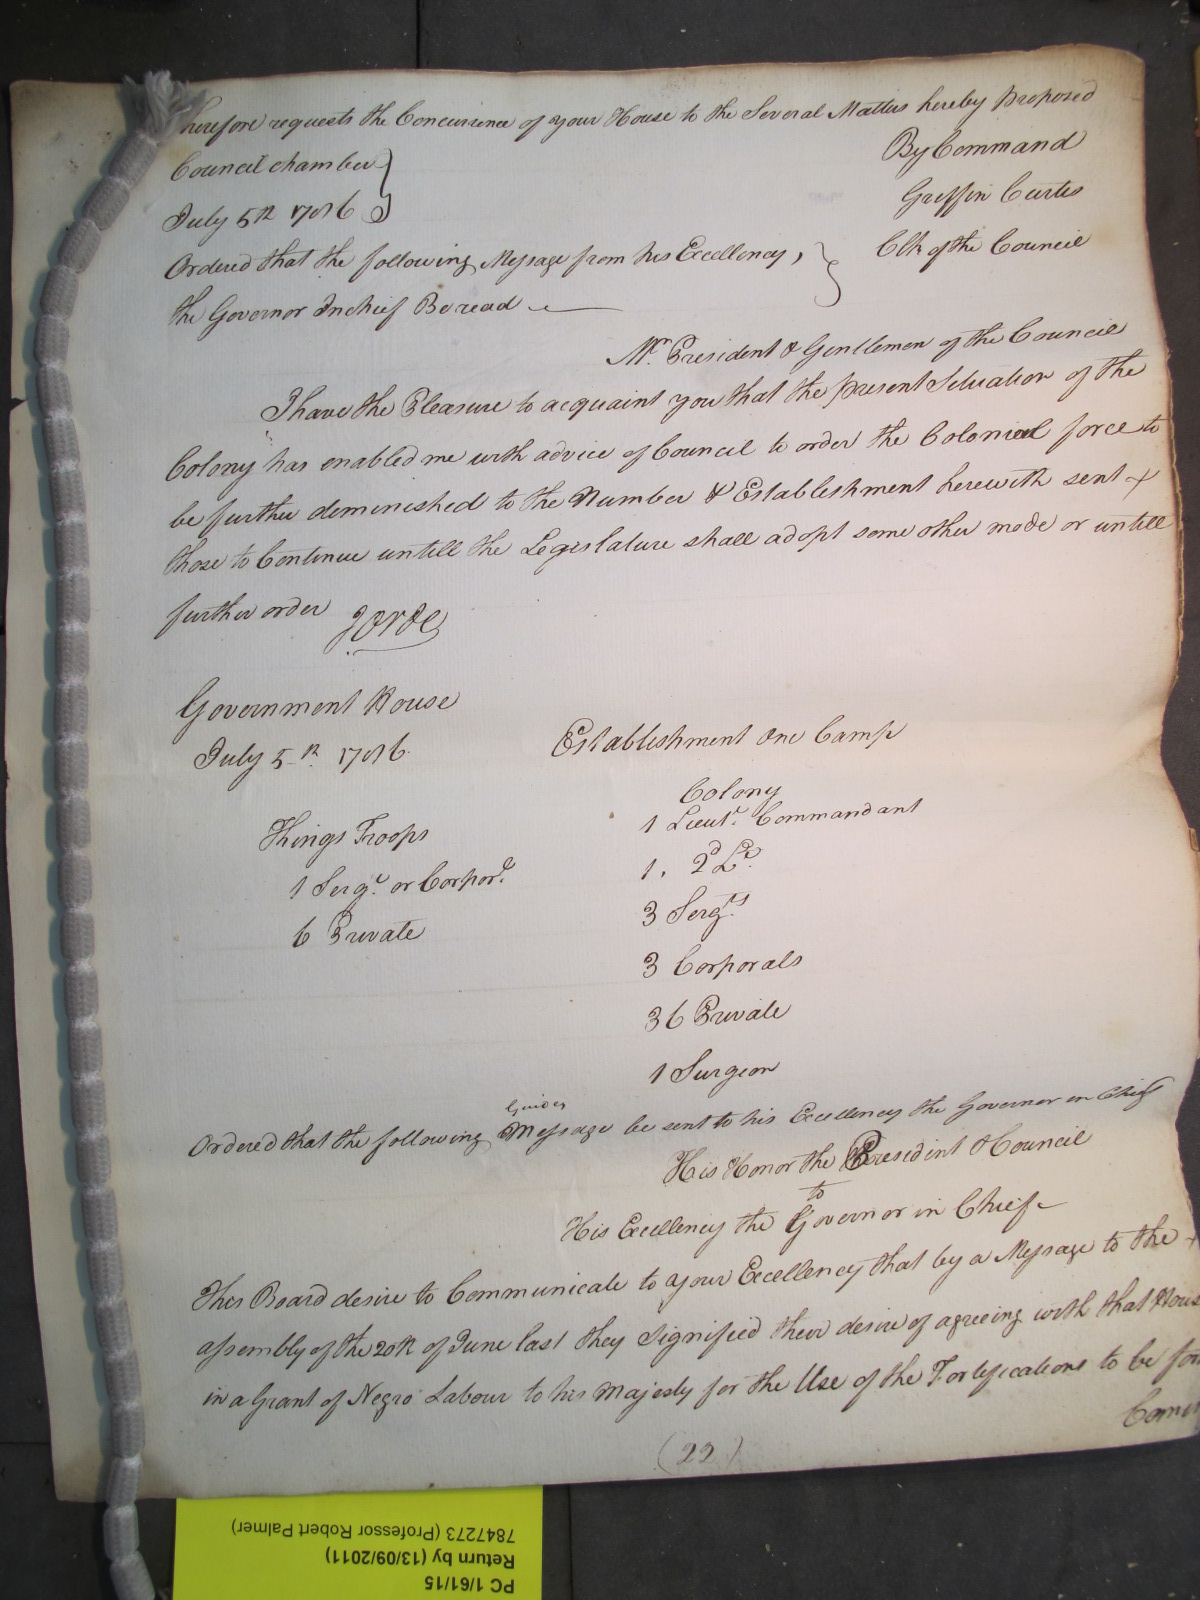 therefore requests the Concurrence of your House to the Several Matters hereby Proposed
Council chamber
July 5th 1786
By Command
Griffin Curtis
Clk of the Council
Ordered that the following Message from his Excellency,
the Governor Inchief Be read
Mr. President & Gentlemen of the Council
I have the Pleasure to acquaint you that the present Situation of the
Colony has enabled me with advice of Council to order the Colonial force to
be further deminished to the Number & Establishment herewith sent
those to Continue untill the Legislature shall adopt some other mode or untill
further order Jorde
Government House
July 5th 1786
Establishment One Camp
Kings Troops
1 Sergt. or Corpor.
6 Private
Colony
1 Lieut. Commandant
1. 2d Lt.
3 Sergts
3 Corporals
36 Private
1 Surgeon
Ordered that the following Message be sent to his Excellency the Governor in Chief
His Honor the President & Council
to
His Excellency the Governor in Chief
This Board desire to Communicate to your Excellency that by a Message to the
assembly of the 20th of June last they Signified their desire of agreeing with that House
in a Grant of Negro Labour to his Majesty for the Use of the Fortifications to be
(22)
PC 1/61/15
Return by (13/09/2011)
7847273 (Professor Robert Palmer)